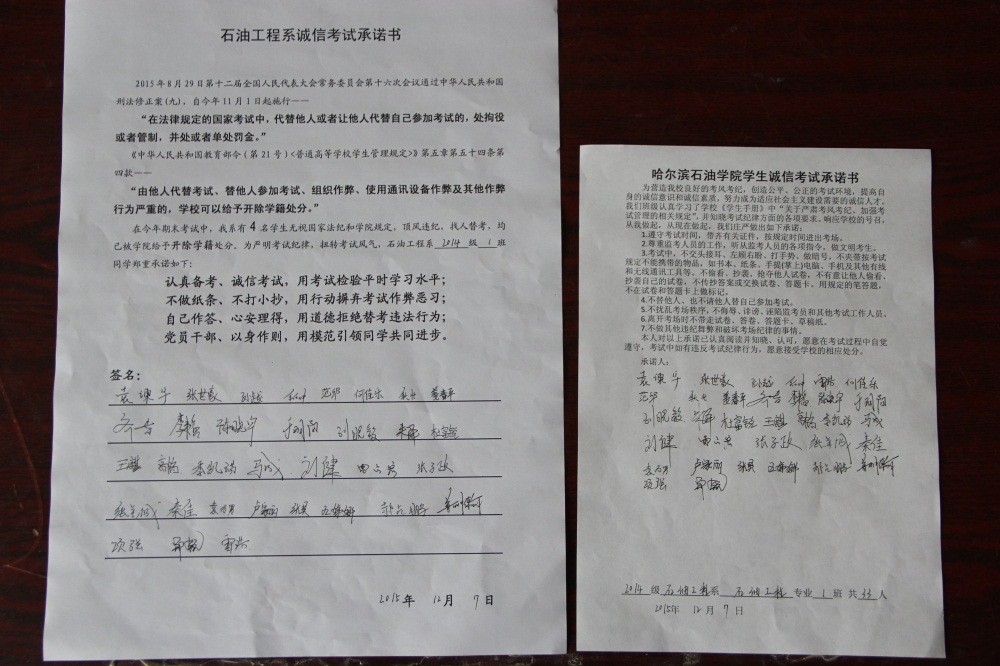 石油工程系诚信考试承诺书
2015年8月29日第十二届全国人民代表大会常务委员会第十六次会议通过中华人民共和国
刑法修正案(九)，自今年11月1日起施行——
“在法律规定的国家考试中，代替他人或者让他人代替自己参加考试的，处拘役
或者管制，并处或者单处罚金。”
《中华人民共和国教育部令（第21号）<普通高等学校学生管理规定>》第五章第五十四条第
四款——
“由他人代替考试、替他人参加考试、组织作弊、使用通讯设备作弊及其他作弊
行为严重的，学校可以给予开除学籍处分。”
在今年期末考试中，我系有4名学生无视国家法纪和学院规定，顶风违纪，找人替考，均
已被学院给予开除学籍处分。为严明考试纪律，扭转考试风气，石油工程系2014级1班
同学郑重承诺如下：
认真备考、诚信考试，用考试检验平时学习水平；
不做纸条、不打小抄，用行动摒弃考试作弊恶习；
自己作答、心安理得，用道德拒绝替考违法行为；
党员干部、以身作则，用模范引领同学共同进步。
签名：
张世豪 孙越 范华 何佳乐
齐吉 刘晓毅
王麒 马成 刘健
秦佳
项强
2015年 12月 7日
哈尔滨石油学院学生诚信考试承诺书
为营造我校良好的考风考纪，创造公平、公正的考试环境，提高自
身的诚信意识和诚信素质，努力成为适应社会主义建设需要的诚信人才。
我们班级认真学习了学校《学生手册》中“关于严肃考风考纪，加强考
试管理的相关规定”，并知晓考试纪律方面的各项要求。响应学校的号召，
从我做起，从现在做起，我们庄严做出如下承诺：
1.遵守考试时间，带齐有关证件，按规定时间进出考场。
2.尊重监考人员的工作，听从监考人员的各项指令，做文明考生。
3.考试中，不交头接耳、左顾右盼、打手势、做暗号，不夹带按考试
规定不能携带的物品，如书本、纸条、手提(掌上)电脑、手机及其他有线
和无线通讯工具等。不偷看、抄袭、抢夺他人试卷，不有意让他人偷看、
抄袭自己的试卷，不传抄答案或交换试卷、答题卡，用规定的笔答题，
不在试卷和答题卡上做标记。
4.不替他人、也不请他人替自己参加考试。
5.不扰乱考场秩序，不侮辱、诽谤、诬陷监考员和其他考试工作人员。
6.离开考场时不带走试卷、答卷、答题卡、草稿纸。
7.不做其他违纪舞弊和破坏考场纪律的事情。
本人对以上承诺已认真阅读并知晓、认可，愿意在考试过程中自觉
遵守，考试中如有违反考试纪律行为，愿意接受学校的相应处分。
承诺人：
张世豪 孙越 何佳乐
范华 齐吉
刘晓毅 王麒 马成
刘健 秦佳
项强
2014级石油工程系 石油工程专业1班 共33人
2015年 12月 7日